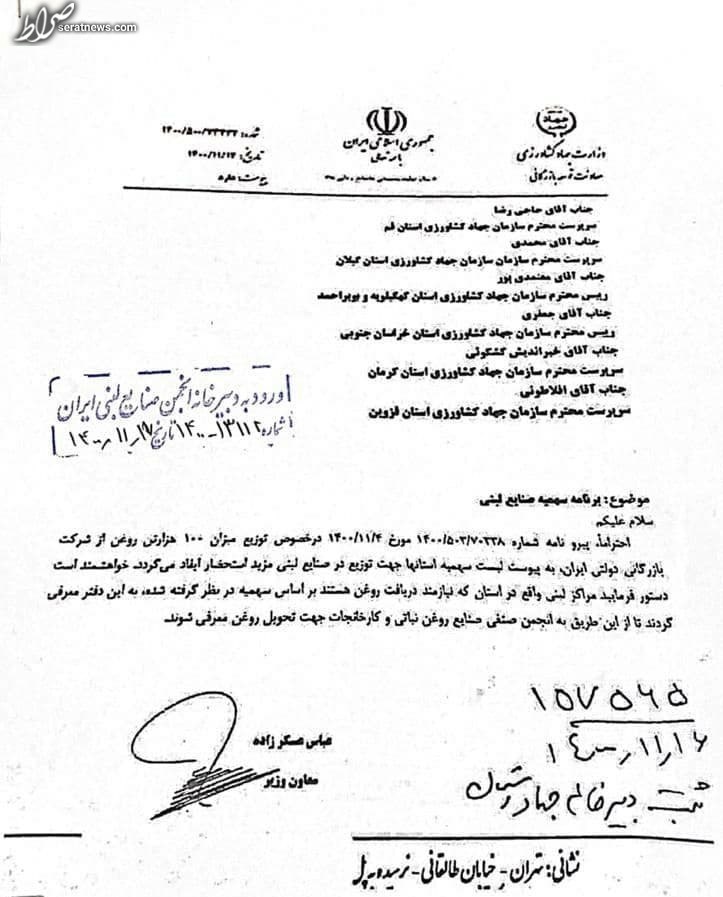 صراط
seratnews.com
جمهوری اسلامی ایران
جهاد
وزارت جهاد کشاورزی
معاونت توسعه بازرگانی
شماره: ۱۴۰۰/۵۰۰/۷۳۴۳۲
تاریخ: ۱۴۰۰/۱۱/۱۴
پیوست: دارد
جناب آقای حاجی رضا
سرپرست محترم سازمان جهاد کشاورزی استان قم
جناب آقای محمدی
سرپرست محترم سازمان سازمان جهاد کشاورزی استان گیلان
جناب آقای معتمدی پور
رییس محترم سازمان جهاد کشاورزی استان کهگیلویه و بویراحمد
جناب آقای جعفری
رییس محترم سازمان جهاد کشاورزی استان خراسان جنوبی
جناب آقای خیراندیش کشکوئی
سرپرست محترم سازمان جهاد کشاورزی استان کرمان
جناب آقای افلاطونی
سرپرست محترم سازمان جهاد کشاورزی استان قزوین
ورود به دبیرخانه انجمن صنایع لبنی ایران
شماره ۱۳۱۱۲-۱۴۰۰ تاریخ ۱۴۰۰,۱۱,۱۷
موضوع: برنامه سهمیه صنایع لبنی
سلام علیکم
احتراماً، پیرو نامه شماره ۱۴۰۰/۵۰۳/۷۰۳۳۸ مورخ ۱۴۰۰/۱۱/۴ درخصوص توزیع میزان ۱۰۰ هزارتن روغن از شرکت
بازرگانی دولتی ایران، به پیوست لیست سهمیه استانها جهت توزیع در صنایع لبنی مزید استحضار ایفاد می‌گردد. خواهشمند است
دستور فرمایید مراکز لبنی واقع در استان که نیازمند دریافت روغن هستند بر اساس سهمیه در نظر گرفته شده، به این دفتر معرفی
گردند تا از این طریق به انجمن صنفی صنایع روغن نباتی و کارخانجات جهت تحویل روغن معرفی شوند.
عباس عسکرزاده
معاون وزیر
۱۵۷۵۶۵
۱۴۰۰,۱۱,۱۶
ثبت دبیرخانه جهاد
نشانی: تهران- خیابان طالقانی- نرسیده به پل